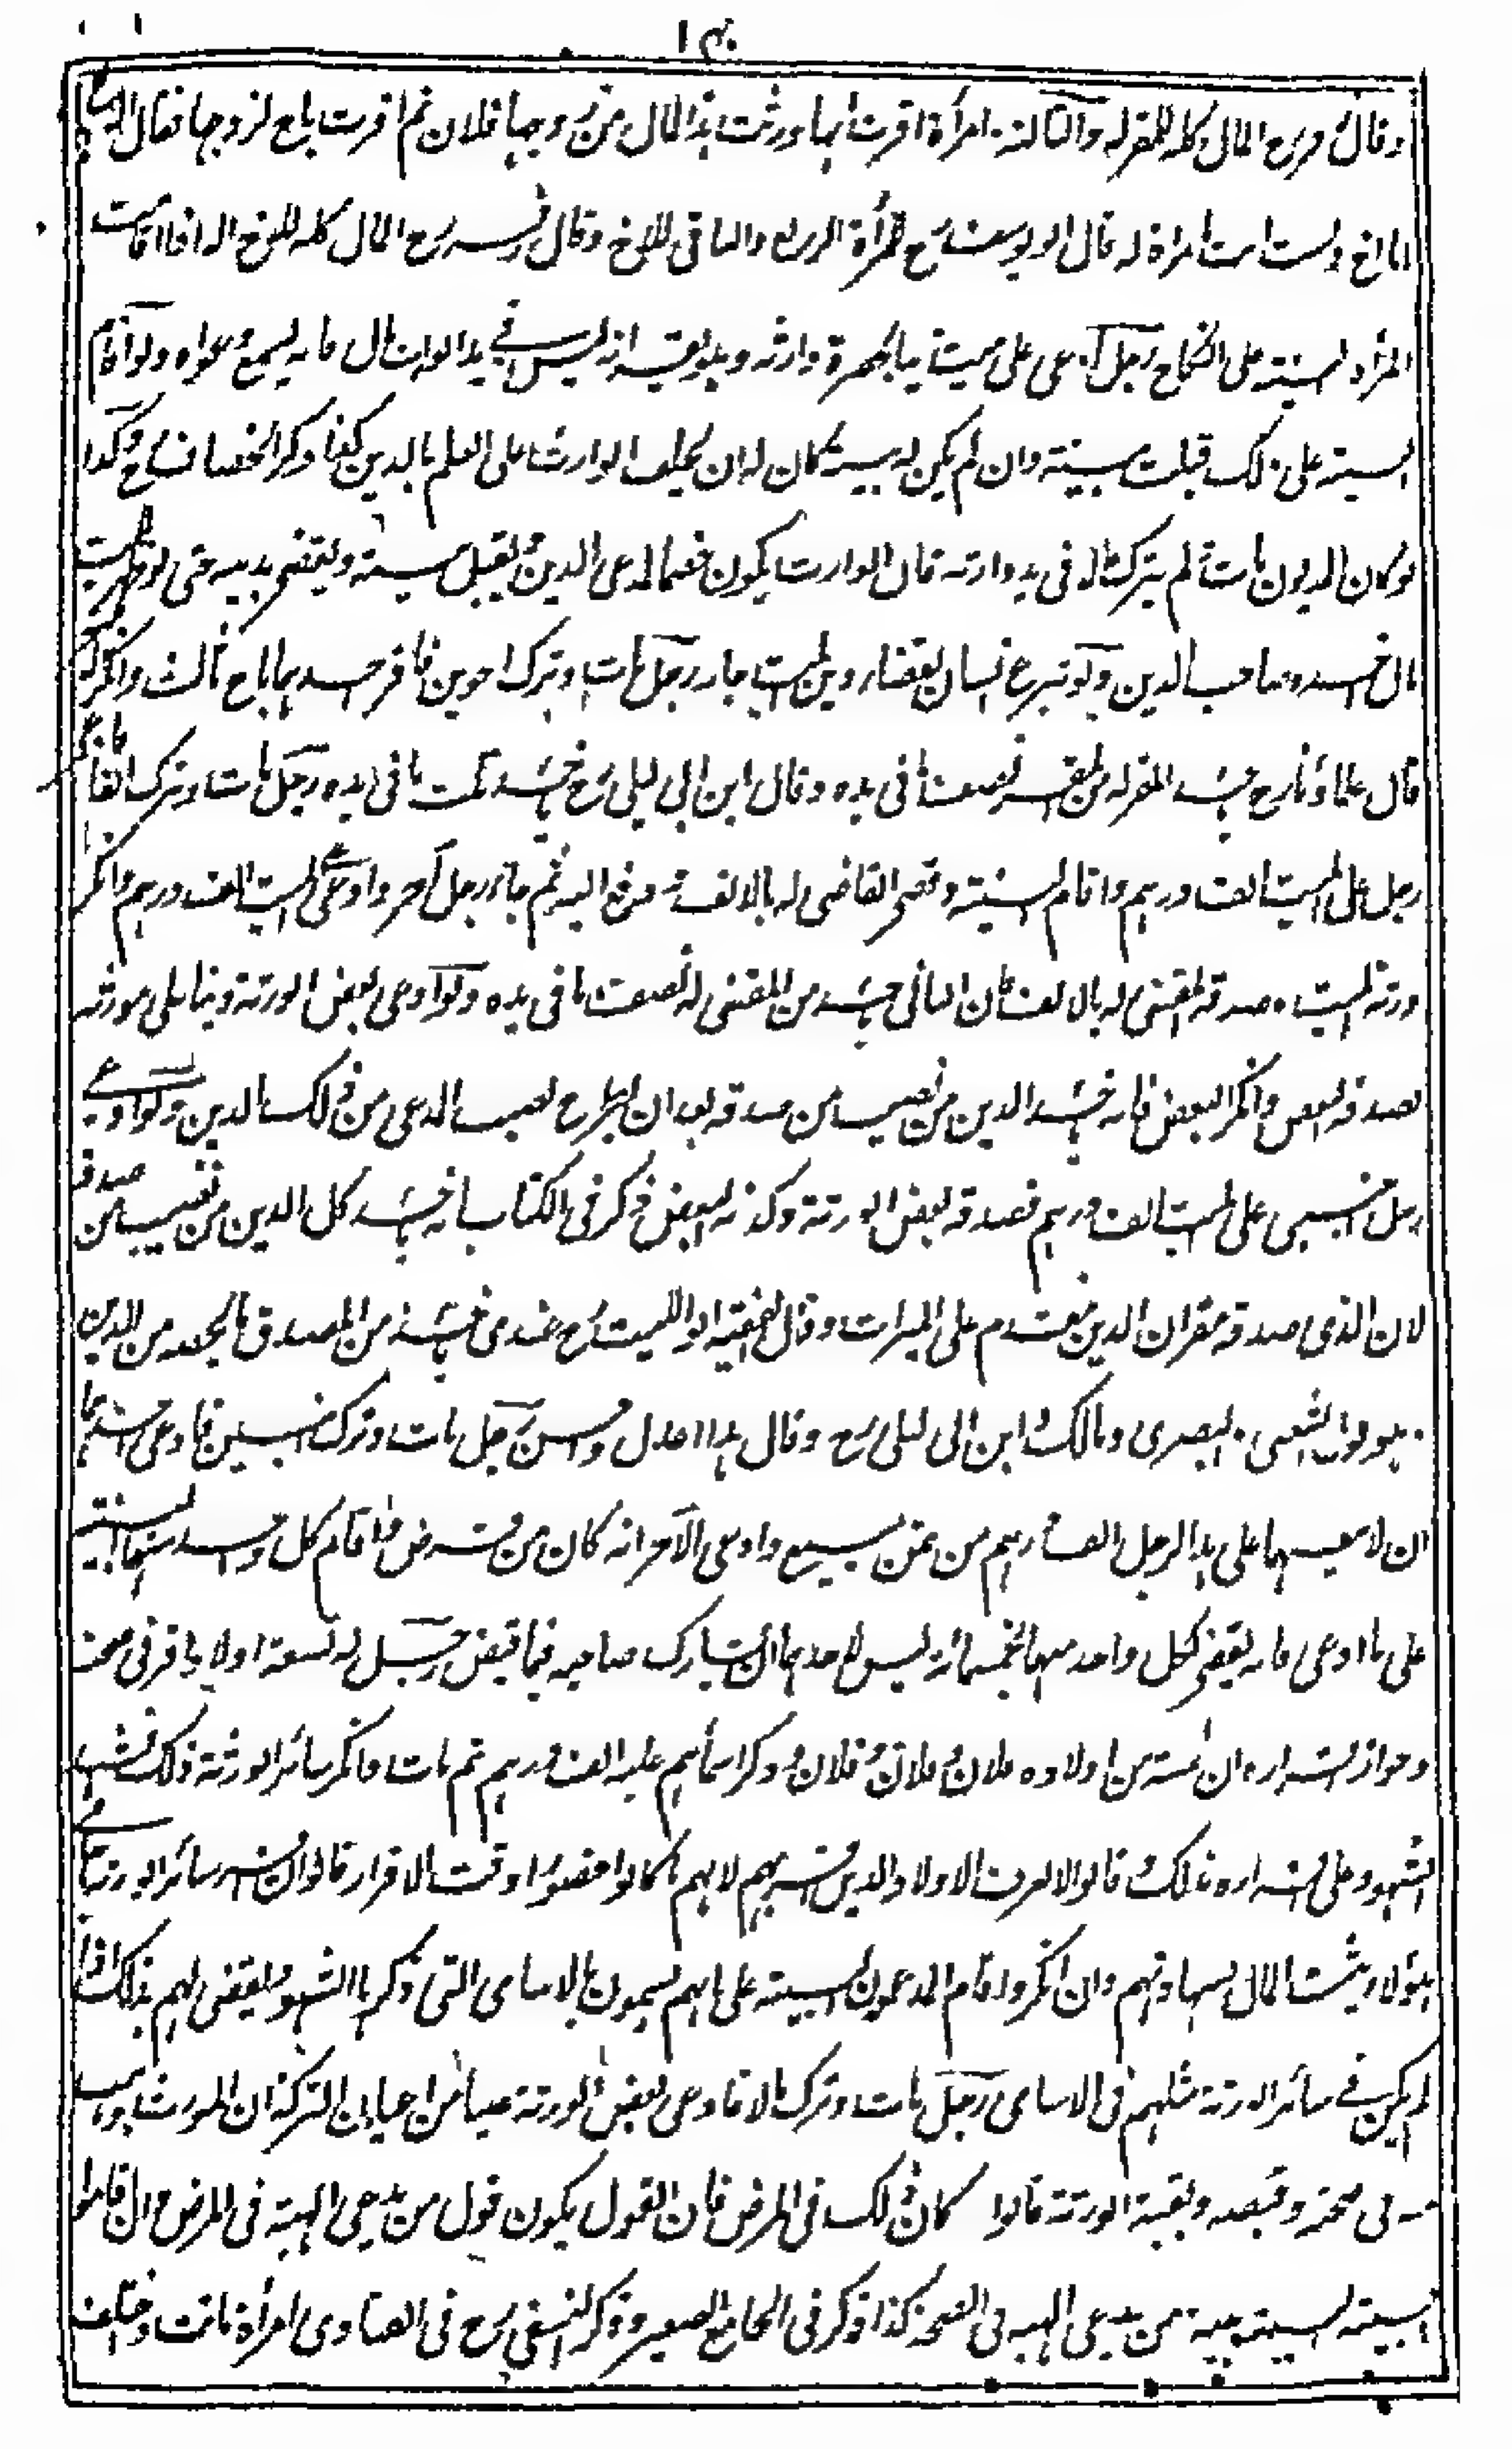 وقال زفر رح المال كله للمقر له والثالثة امرأة اقرت انها ورثت هذا المال من زوجها فلان ثم اقرت باخ لزوجها فقال الاخ
انا اخ ولست انت امراة له قال ابو يوسف رح للمرأة الربع والباقى للاخ وقال زفر رح المال كله للاخ الا اذا اقامت
المرأة البينة على النكاح رجل ادعى على ميت دينا بحضرة وارثه وبه يقر انه ليس فى يد الوارث مال فانه يسمع دعواه ولو اقام
البينة على ذلك قبلت بينته وان لم يكن له بينة كان له ان يحلف الوارث على العلم بالدين كذا ذكر الخصاف رح وكذا
لو كان المديون مات ولم يترك مالا فى يد وارثه فان الوارث يكون خصما لمدعى الدين ويقبل بينته ويقضى بدينه حتى لو ظهر للميت
مال اخذه صاحب الدين ولو تبرع انسان بقضاء دين الميت جاز رجل مات وترك اخوين فاقر احدهما باخ ثالث وانكر الآخر
قال علماؤنا رح يأخذ المقر له من المقر نصف ما فى يده وقال ابن ابى ليلى رح يأخذ ثلث ما فى يده رجل مات وترك الفا فادعى
رجل على الميت الف درهم واقام البينة وقضى القاضى له بالالف ودفع اليه ثم جاء رجل آخر وادعى على الميت الف درهم وانكر
ورثة الميت وصدقه المقضى له بالالف فان الثانى يأخذ من المقضى له نصف ما فى يده ولو ادعى بعض الورثة دينا على مورثه
فصدقه البعض وانكر البعض فانه يأخذ الدين من نصيب من صدقه بعد ان يطرح نصيب المدعى من ذلك الدين ولو ادعى
رجل اجنبى على الميت الف درهم فصدقه بعض الورثة وكذبه البعض ذكر فى الكتاب انه يأخذ كل الدين من نصيب من صدقه
لان الذى صدقه مقر ان الدين مقدم على الميراث وقال الفقيه ابو الليث رح عندى يأخذ من المصدق ما يخصه من الدين
وهو قول الشعبى والبصرى ومالك وابن ابى ليلى رح وقال هذا اعدل واحسن رجل مات وترك ابنين فادعى احدهما
ان لابيهما على هذا الرجل الف درهم من ثمن مبيع وادعى الآخر انه كان من قرض واقام كل واحد منهما البينة
على ما ادعى فانه يقضى لكل واحد منهما بخمسمائة وليس لاحدهما ان يشارك صاحبه فيما قبض رجل له تسعة اولاد اقر فى صحته
وجواز اقراره ان لخمسة من اولاده فلان وفلان وفلان وذكر اسماءهم عليه الف درهم ثم مات فانكر سائر الورثة ذلك فشهد
الشهود على اقراره بذلك وقالوا لا نعرف الاولاد الذين اقر لهم لانهم ما كانوا حضورا وقت الاقرار قالوا ان اقر سائر الورثة باسامى
هؤلاء يثبت المال بشهادتهم وان انكروا اقام المدعون البينة على انهم يسمون بالاسامى التى ذكرها الشهود يقضى لهم بذلك اذا
لم يكن فى سائر الورثة مثلهم فى الاسامى رجل مات وترك مالا فادعى بعض الورثة عينا من اعيان التركة ان المورث وهبه
له فى صحته وقبضه وبقية الورثة قالوا كان ذلك فى المرض فان القول يكون قول من يدعى الهبة فى المرض وان اقاموا
البينة فالبينة بينة من يدعى الهبة فى الصحة كذا ذكر فى الجامع الصغير وذكر النسفى رح فى الفتاوى امرأة ماتت واختلف